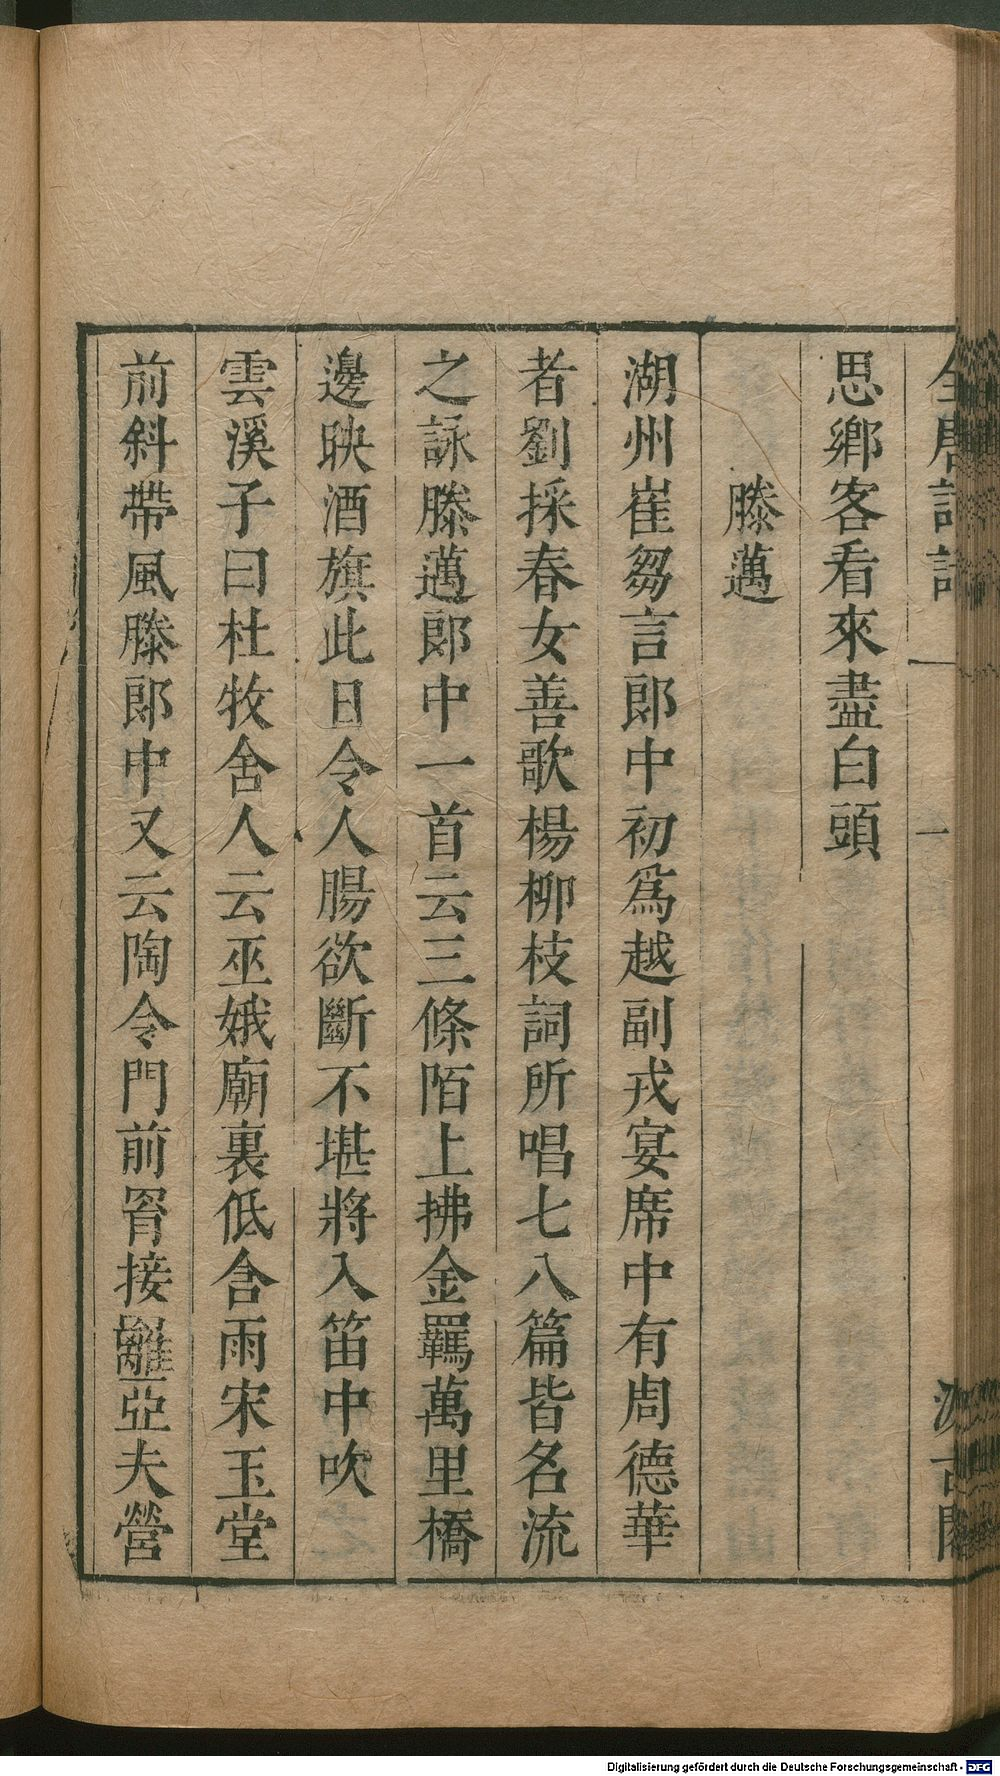 全唐詩話 一 汲古閣
思鄉客看來盡白頭
滕邁
湖州崔芻言郎中初爲越副戎宴席中有周德華
者劉採春女善歌楊柳枝詞所唱七八篇皆名流
之詠滕邁郎中一首云三條陌上拂金羈萬里橋
邊映酒旗此日令人腸欲斷不堪將入笛中吹
雲溪子曰杜牧舍人云巫娥廟裏低含雨宋玉堂
前斜帶風滕郎中又云陶令門前罥接䍦亞夫營
Digitalisierung gefördert durch die Deutsche Forschungsgemeinschaft - DFG